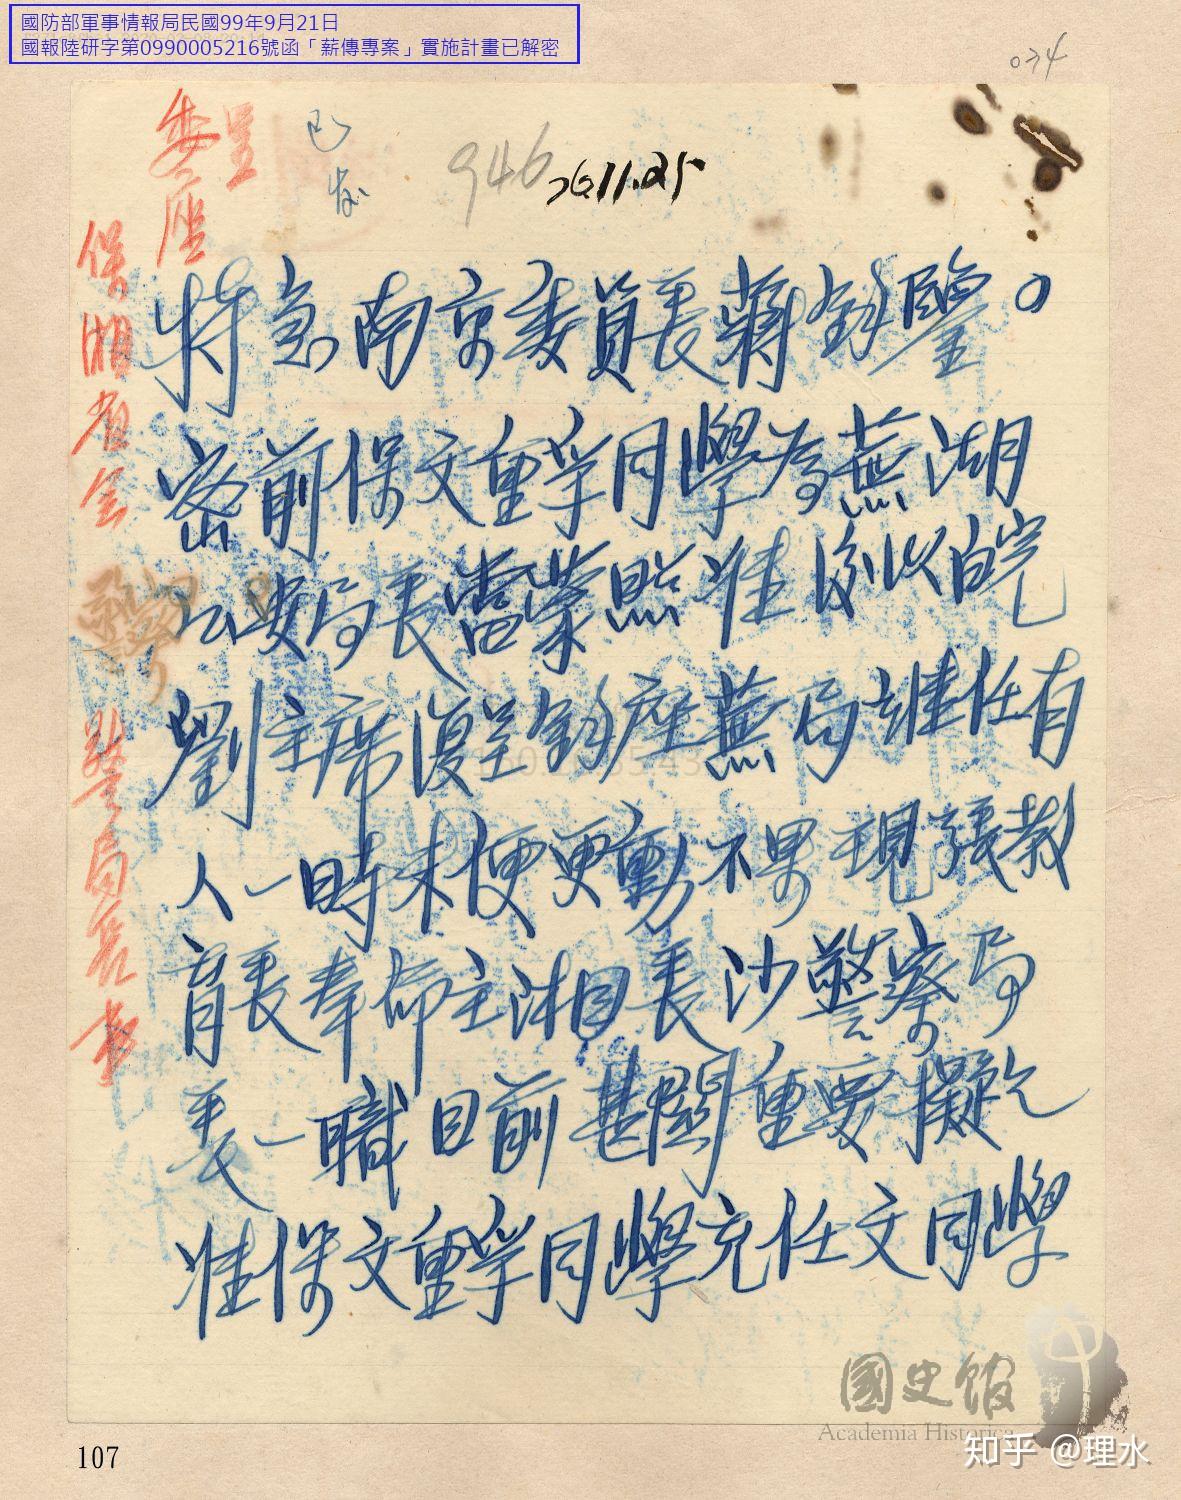 國防部軍事情報局民國99年9月21日
國報陸研字第0990005216號函「薪傳專案」實施計畫已解密
034
呈
委座
已發
946
26.11.25
保湘省会
警局長事
特急南京委員長蔣鈞鑒。
密前保文重孚同學為蕪湖
公安局長當蒙照准後以皖
劉主席復呈鈞座蕪局繼任有
人一時未便更動不果現張教
育長奉命主湘目長沙警察局
長一職目前甚關重要擬乞
准保文重孚同學充任文同學
國史館
Academia Historica
107
知乎 @理水